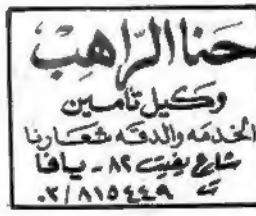 حنا الراهب
وكيل تأمين
الخدمه والدقه شعارنا
شارع يفيت ٨٢ - يافا
ت ٠٢/٨١٥٤٤٩